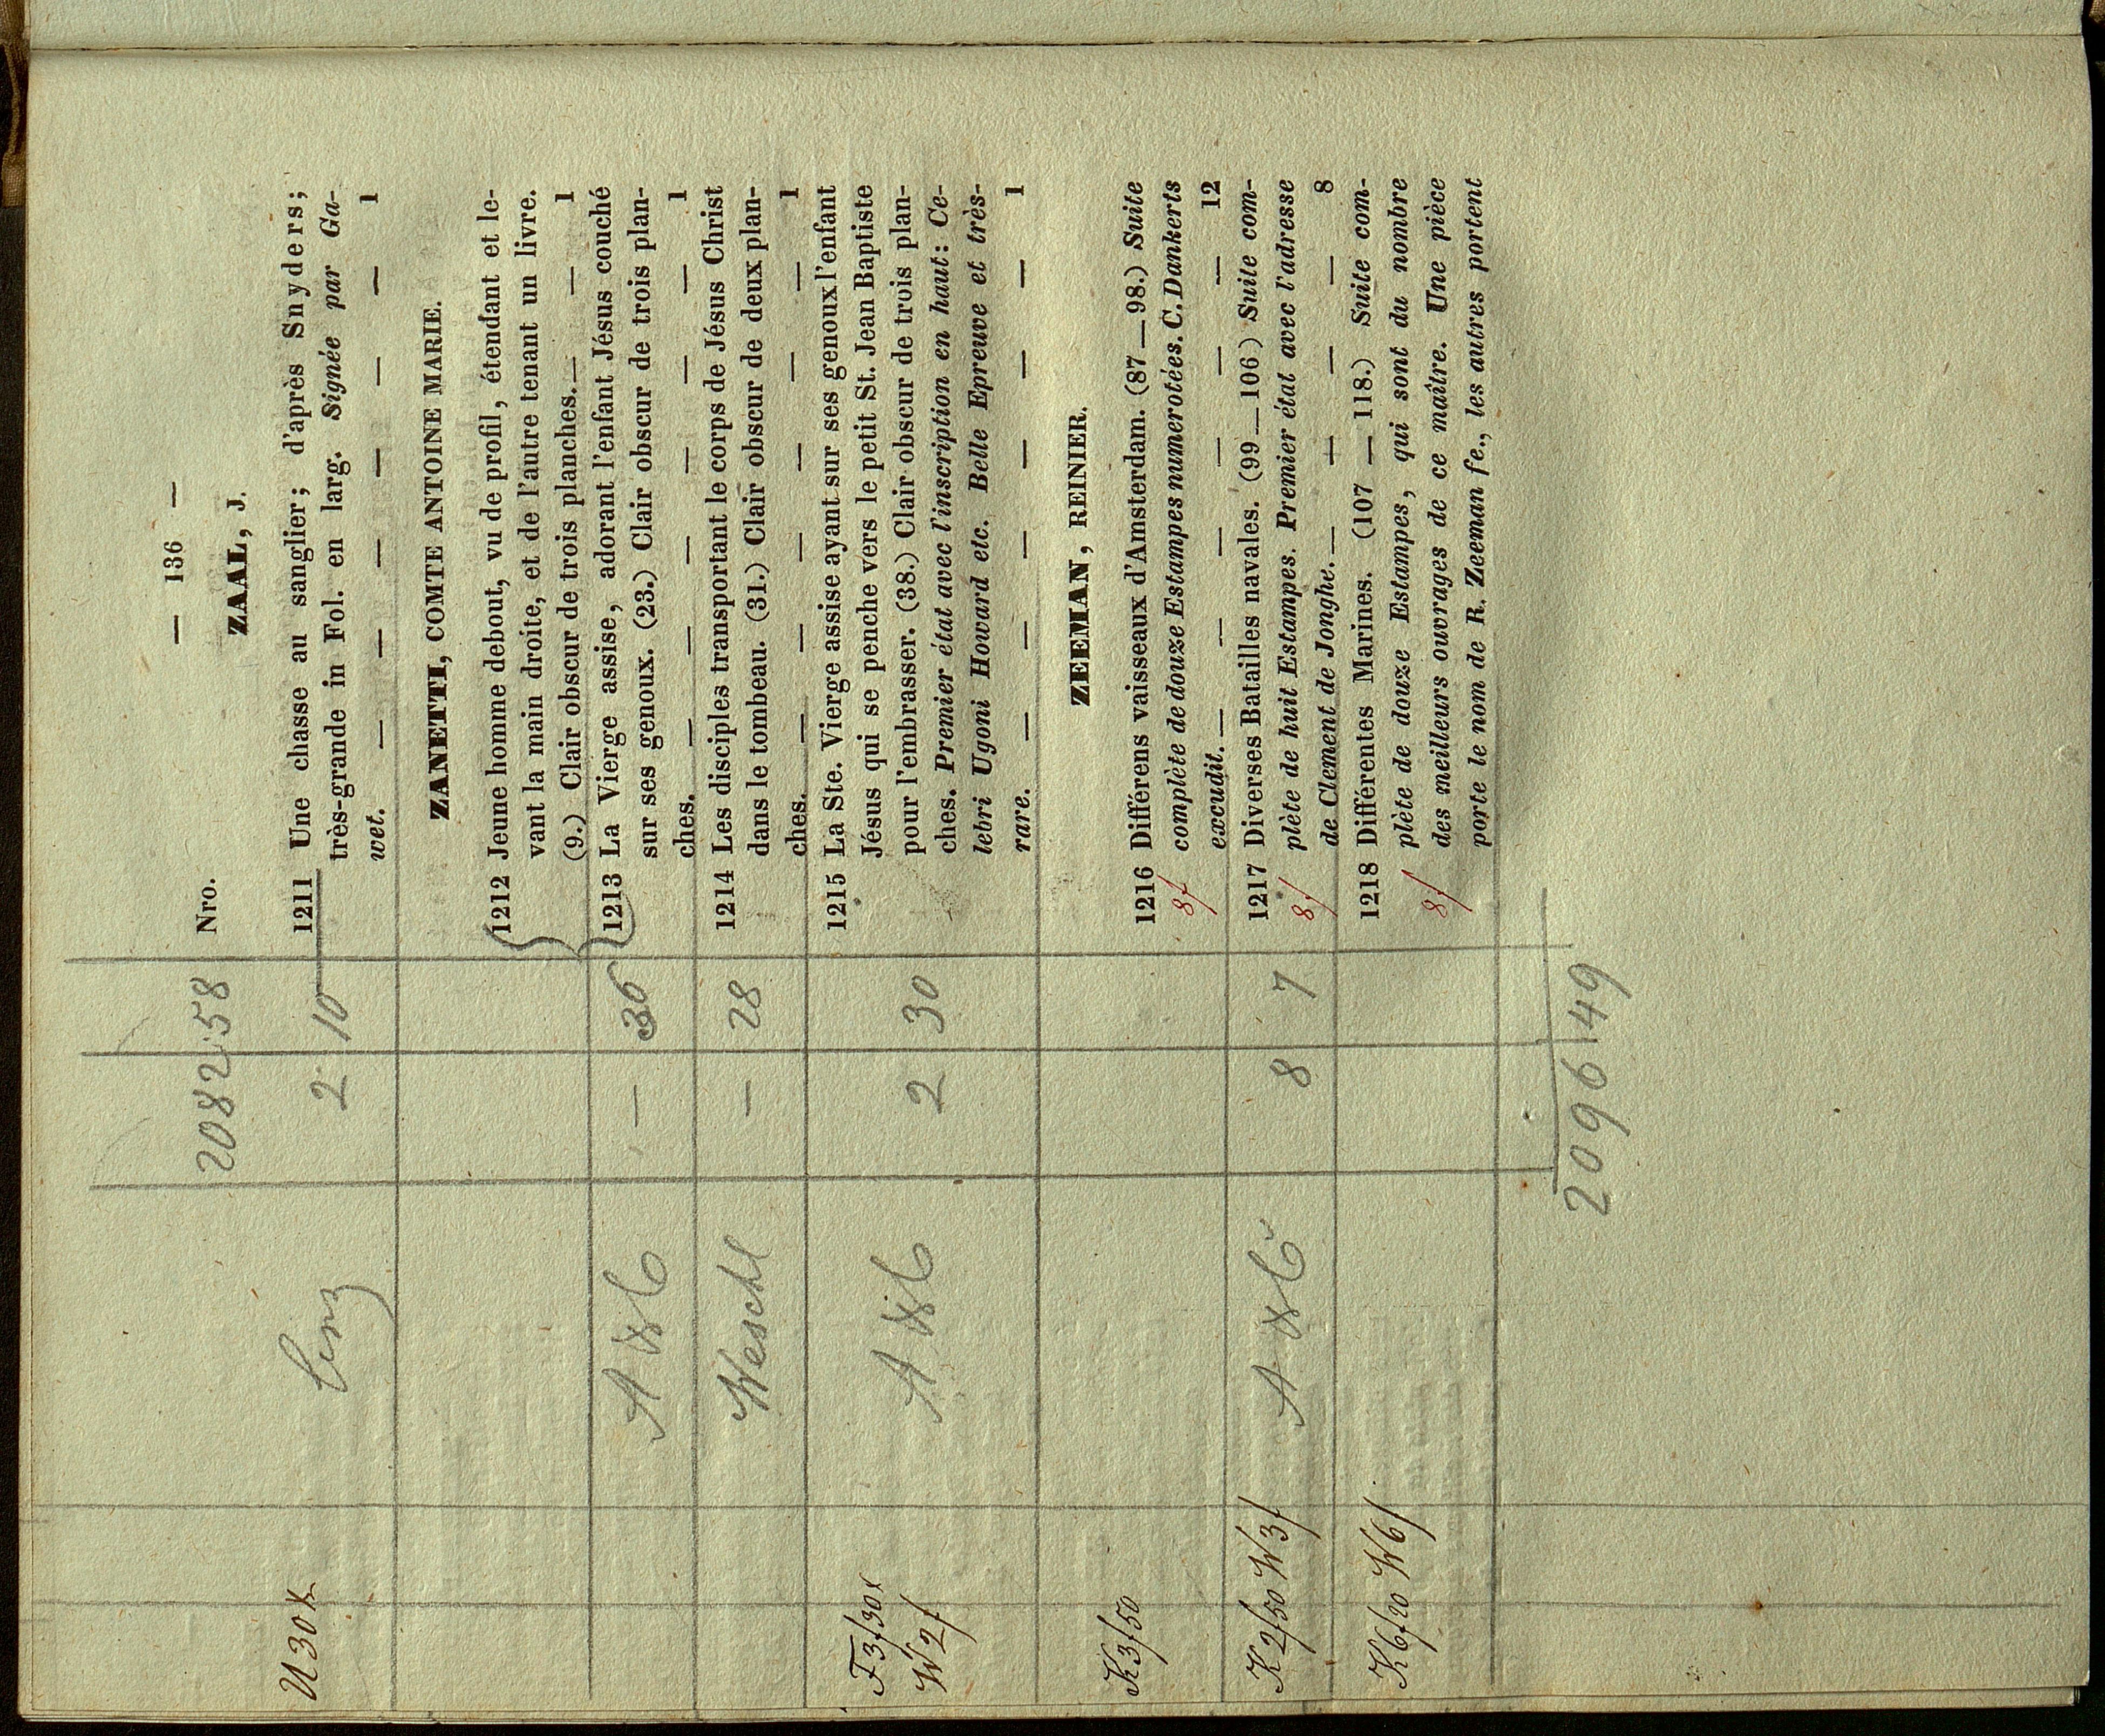 — 136 —
2082 58 Nro. ZAAL, J.
U 30 x 2 10 1211 Une chasse au sanglier; d'après Snyders;
très-grande in Fol. en larg. Signée par Ga-
wet. — — — — — — 1
ZANETTI, COMTE ANTOINE MARIE.
1212 Jeune homme debout, vu de profil, étendant et le-
vant la main droite, et de l'autre tenant un livre.
(9.) Clair obscur de trois planches. — — 1
A & C — 36 1213 La Vierge assise, adorant l'enfant Jésus couché
sur ses genoux. (23.) Clair obscur de trois plan-
ches. — — — — — — 1
Weschl — 28 1214 Les disciples transportant le corps de Jésus Christ
dans le tombeau. (31.) Clair obscur de deux plan-
ches. — — — — — — 1
F 3f 30x 1215 La Ste. Vierge assise ayant sur ses genoux l'enfant
Jésus qui se penche vers le petit St. Jean Baptiste
W 2f A & C 2 30 pour l'embrasser. (38.) Clair obscur de trois plan-
ches. Premier état avec l'inscription en haut: Ce-
lebri Ugoni Howard etc. Belle Epreuve et très-
rare. — — — — — — 1
ZEEMAN, REINIER.
K 3f 50 1216 Différens vaisseaux d'Amsterdam. (87—98.) Suite
8f complète de douze Estampes numerotées. C. Dankerts
excudit. — — — — — — 12
K 2f 50 W 3f A & C 8 7 1217 Diverses Batailles navales. (99—106) Suite com-
8f plète de huit Estampes. Premier état avec l'adresse
de Clement de Jonghe. — — — — 8
K 6f 20 W 6f 1218 Différentes Marines. (107—118.) Suite com-
plète de douze Estampes, qui sont du nombre
8f des meilleurs ouvrages de ce maître. Une pièce
porte le nom de R. Zeeman fe., les autres portent
2096 49